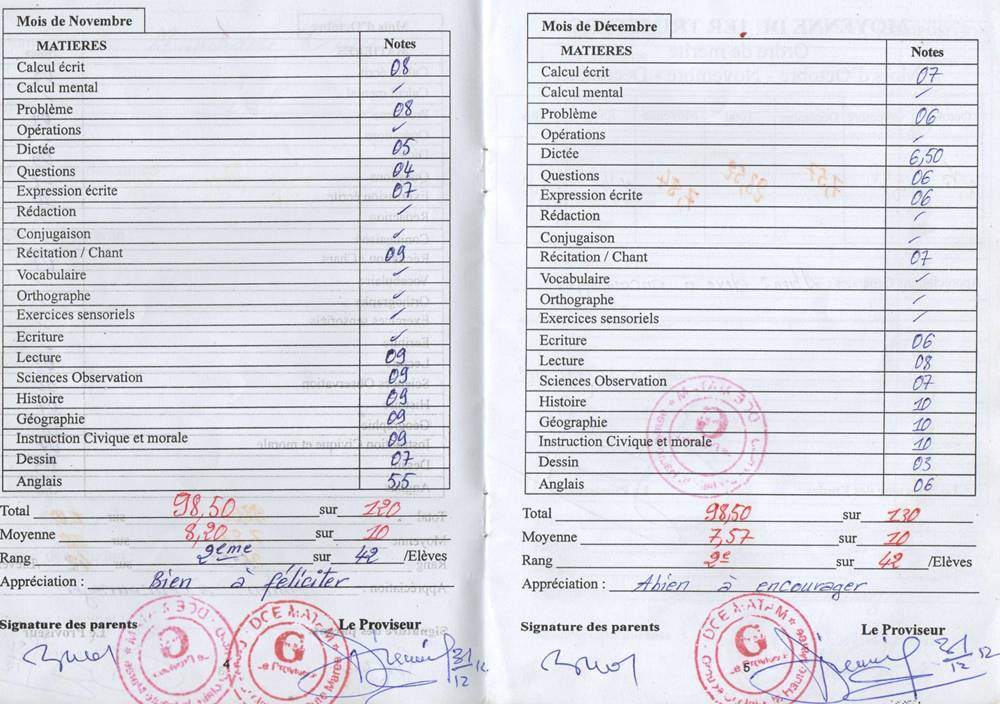 Mois de Novembre
MATIERES Notes
Calcul écrit 08
Calcul mental ✓
Problème 08
Opérations ✓
Dictée 05
Questions 04
Expression écrite 07
Rédaction ✓
Conjugaison ✓
Récitation / Chant 09
Vocabulaire ✓
Orthographe ✓
Exercices sensoriels ✓
Ecriture ✓
Lecture 09
Sciences Observation 09
Histoire 09
Géographie 09
Instruction Civique et morale 09
Dessin 07
Anglais 5,5
Total 98,50 sur 120
Moyenne 8,20 sur 10
Rang 2ème sur 42 /Elèves
Appréciation : Bien à féliciter
Signature des parents Le Proviseur
4
Mois de Décembre
MATIERES Notes
Calcul écrit 07
Calcul mental ✓
Problème 06
Opérations ✓
Dictée 6,50
Questions 06
Expression écrite 06
Rédaction ✓
Conjugaison ✓
Récitation / Chant 07
Vocabulaire ✓
Orthographe ✓
Exercices sensoriels ✓
Ecriture 06
Lecture 08
Sciences Observation 07
Histoire 10
Géographie 10
Instruction Civique et morale 10
Dessin 03
Anglais 06
Total 98,50 sur 130
Moyenne 7,57 sur 10
Rang 2e sur 42 /Elèves
Appréciation : Abien à encourager
Signature des parents Le Proviseur
5